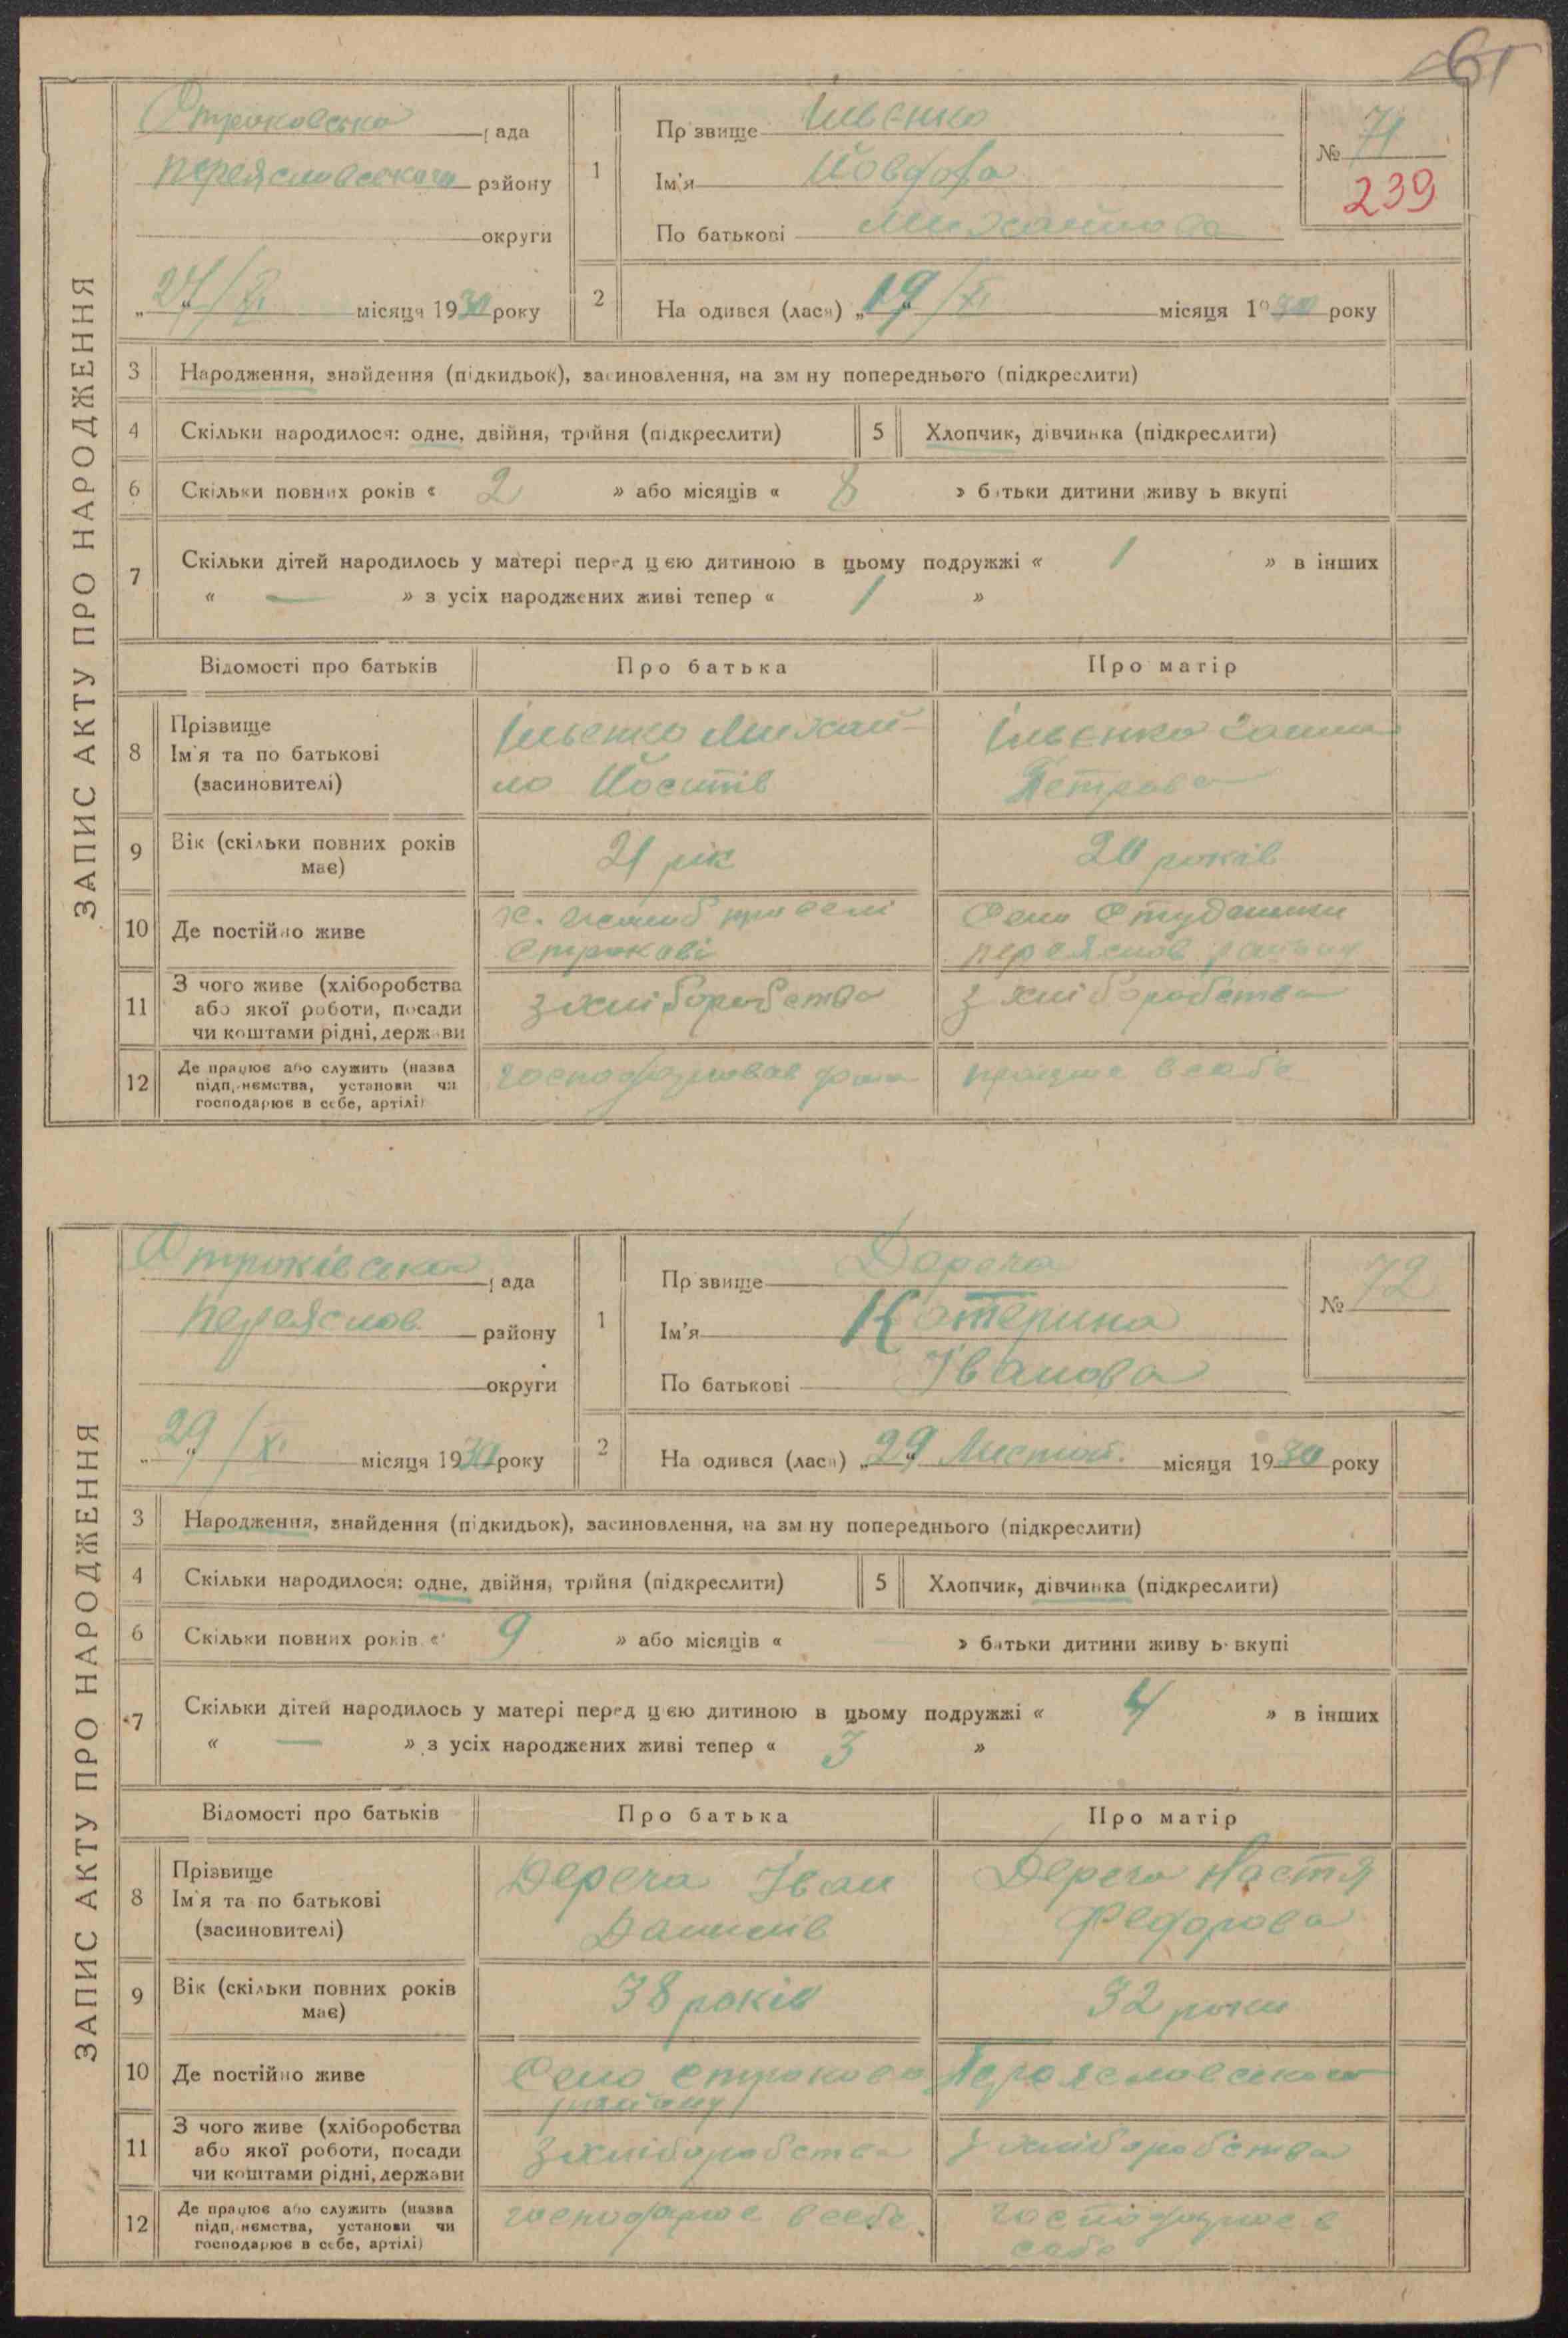 61
ЗАПИС АКТУ ПРО НАРОДЖЕННЯ
рада
Переяславського району
округи
27/XI місяця 1930 року
1
Прізвище Ільєнко
Ім'я
По батькові Михайлова
№ 71
239
2
На одився (лася) „19/XI місяця 1930 року
3 Народження, знайдення (підкидьок), засиновлення, на зм ну попереднього (підкреслити)
4 Скільки народилося: одне, двійня, трійня (підкреслити)
5 Хлопчик, дівчинка (підкреслити)
6 Скільки повних років « 2 » або місяців « 8 » батьки дитини живу ь вкупі
7 Скільки дітей народилось у матері перед цією дитиною в цьому подружжі « 1 » в інших
« — » з усіх народжених живі тепер « 1 »
Відомості про батьків Про батька Про матір
8 Прізвище
Ім'я та по батькові
(засиновителі)
Ільєнко Михай-
ло
Ільєнко
Петрова
9 Вік (скільки повних років
має)
21 рік
20 років
10 Де постійно живе
Село Студеники
переяслов району
11 З чого живе (хліборобства
або якої роботи, посади
чи коштами рідні, держави
з хліборобства
з хліборобства
12 Де працює або служить (назва
підп, ємства, установи чи
господарює в себе, артілі)
працює в себе
ЗАПИС АКТУ ПРО НАРОДЖЕННЯ
рада
Переяслов району
округи
29/XI місяця 1930 року
1
Прізвище Дереча
Ім'я Катерина
По батькові Іванова
№ 72
2
На одився (лася) „29 Листоп. місяця 1930 року
3 Народження, знайдення (підкидьок), засиновлення, на зм ну попереднього (підкреслити)
4 Скільки народилося: одне, двійня, трійня (підкреслити)
5 Хлопчик, дівчинка (підкреслити)
6 Скільки повних років « 9 » або місяців « » батьки дитини живу ь вкупі
7 Скільки дітей народилось у матері перед цією дитиною в цьому подружжі « 4 » в інших
« — » з усіх народжених живі тепер « 3 »
Відомості про батьків Про батька Про матір
8 Прізвище
Ім'я та по батькові
(засиновителі)
Дереча Іван
Данилів
Дереча Настя
Федорова
9 Вік (скільки повних років
має)
38 років
32 роки
10 Де постійно живе
Село Строкова Переяславського
району
11 З чого живе (хліборобства
або якої роботи, посади
чи коштами рідні, держави
з хліборобства
з хліборобства
12 Де працює або служить (назва
підп, ємства, установи чи
господарює в себе, артілі)
господарює в себе
господарює в
себе